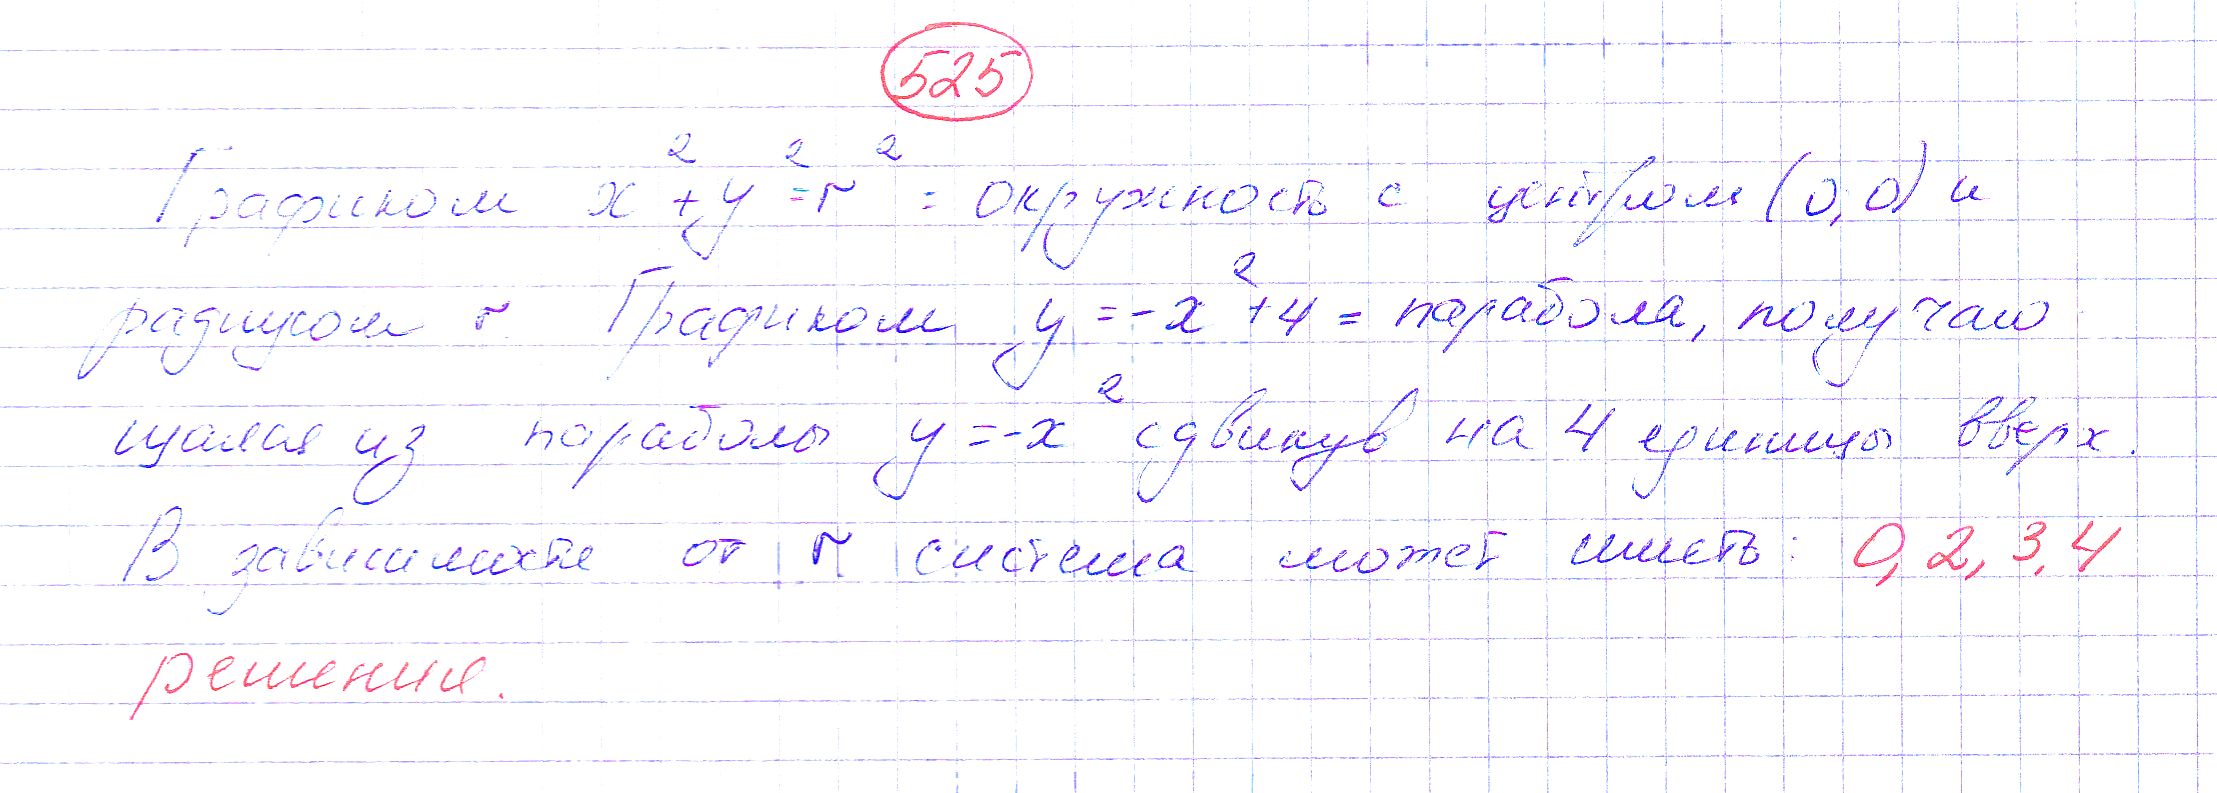 525
Графиком x²+y²=r² = окружность с центром (0,0) и
радиусом r Графиком y=-x²+4 = парабола, получаю
щаяся из параболы y=-x² сдвинув на 4 единицы вверх.
В зависимости от r система может иметь: 0, 2, 3, 4
решения.